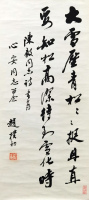 大雪壓青松々々挺且直
要知松高潔待到雪化時
陳毅同志詩
同志
趙樸初